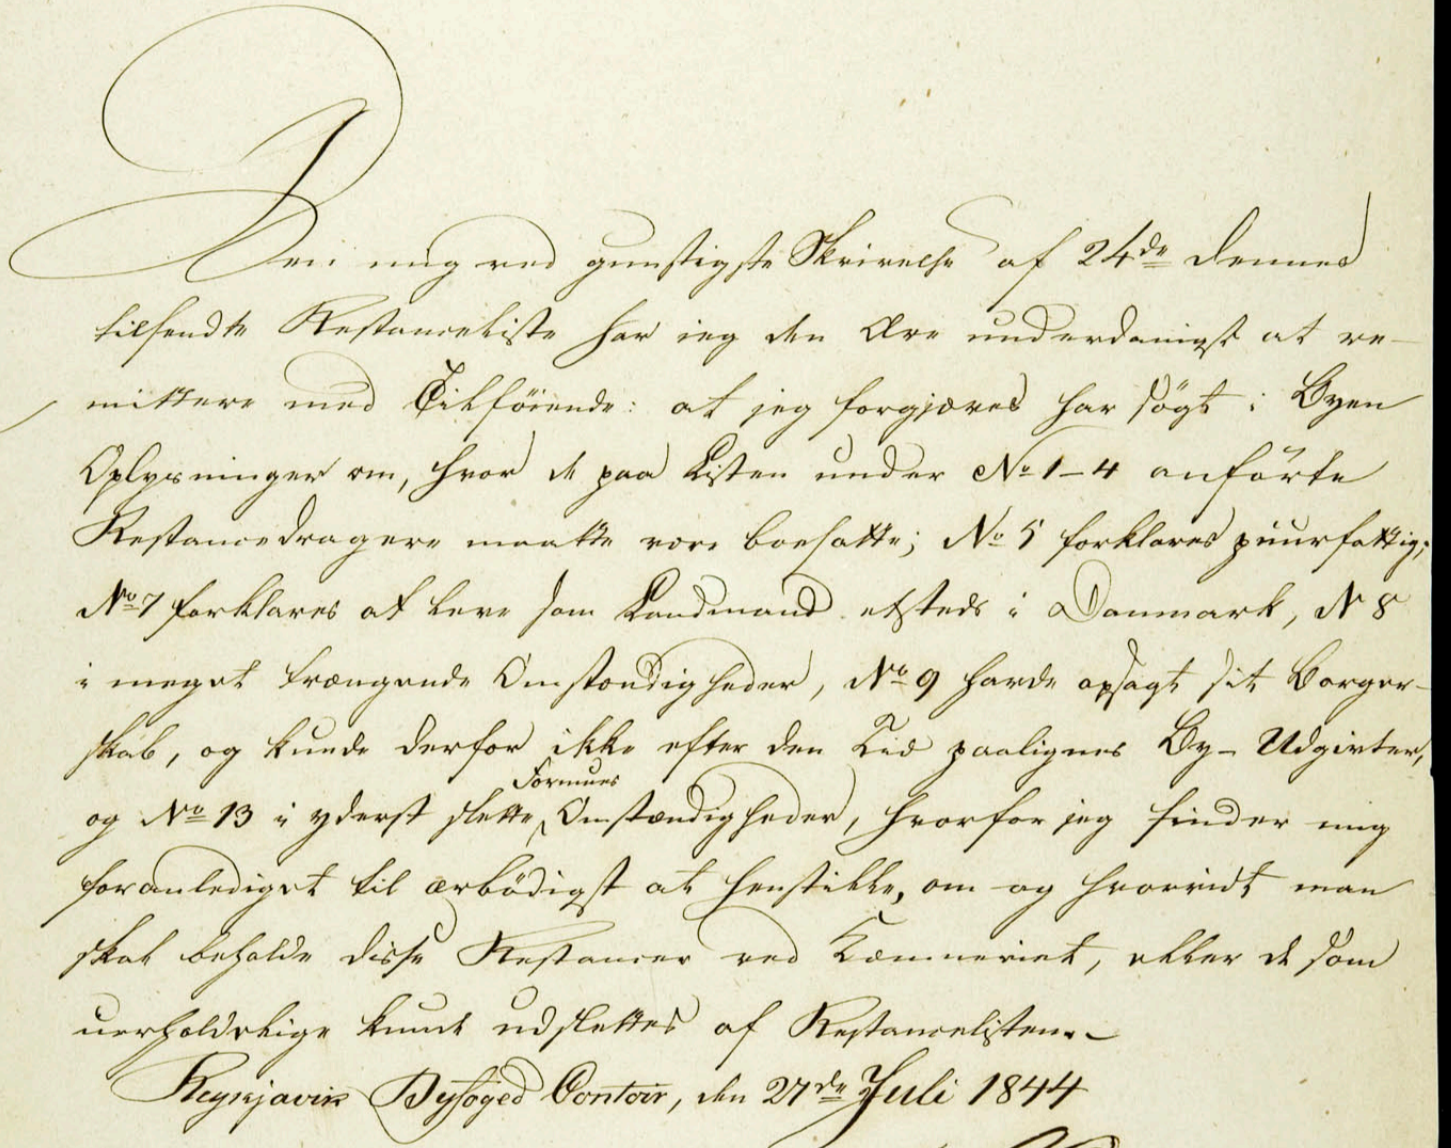 Den mig ved gunstigste Skrivelse af 24de dennes
tilsendte Restanceliste har jeg den Ære underdanigst at re-
mittere med Tilföiende: at jeg forgjæves har sögt i Byen
Oplysninger om, hvor de paa Listen under No 1-4 anförte
Restancedragere maatte være bosatte; No 5 forklares puurfattig;
No 7 forklares at leve som Landmand etsteds i Danmark, N 8
i meget trængende Omstændigheder, No 9 havde opsagt sit Borger-
skab, og kunde derfor ikke efter den Tid paalignes By-Udgivter,
Formues
og No 13 i yderst slette Omstændigheder, hvorfor jeg finder mig
foranlediget til ærbödigst at henstille, om og hvorvidt man
skal beholde disse Restancer ved Kæmneriet, eller de som
uerholdelige kunde udslettes af Restancelisten.-
Reykjavik Byfoged Contoir, den 27de Juli 1844